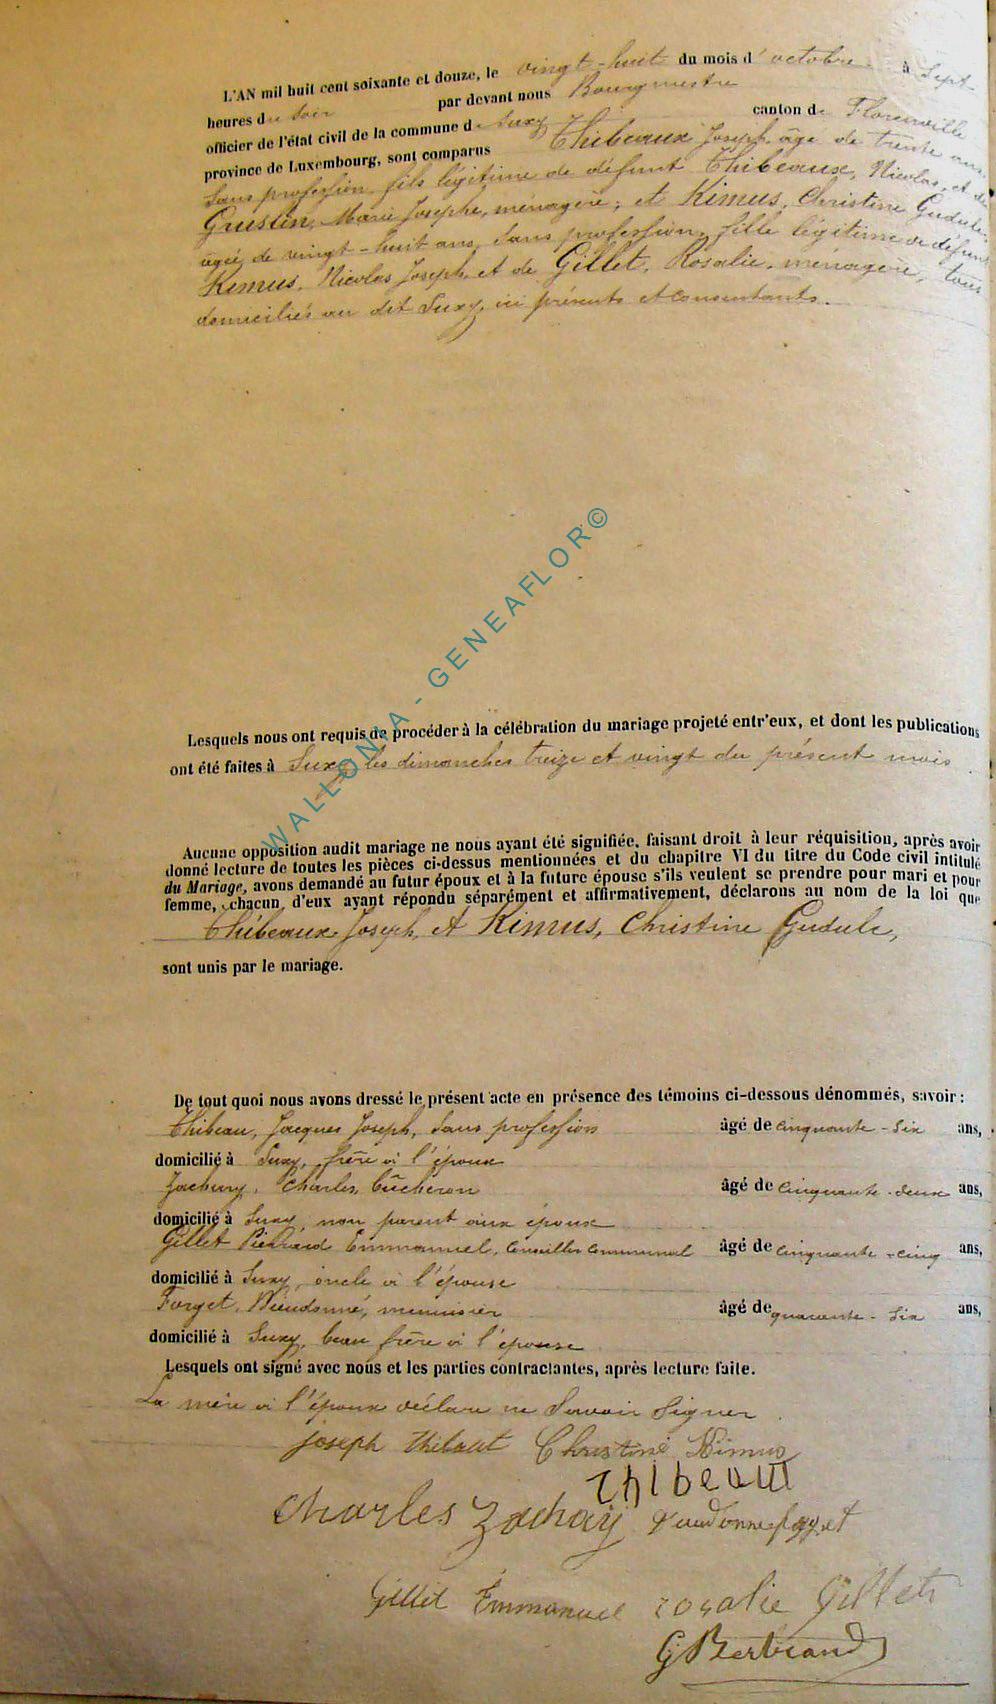 L'AN mil huit cent soixante et douze, le vingt-huit du mois d'octobre à Sept
heures du soir par devant nous Bourgmestre
officier de l'état civil de la commune de Suxy canton de Florenville
province de Luxembourg, sont comparus Thibeaux Joseph, âgé de trente ans
Sans profession, fils légitime de défunt Thibeaux, Nicolas, et de
Guestin, Marie Josephe, ménagère; et Kimus, Christine Gudule,
agée de vingt-huit ans, Sans profession, fille légitime de défunt
Kimus, Nicolas Joseph, et de Gillet, Rosalie, ménagère, tous
domiciliés au dit Suxy, ici présents et consentants.
WALLONIA - GENEAFLOR©
Lesquels nous ont requis de procéder à la célébration du mariage projeté entr'eux, et dont les publications
ont été faites à Suxy les dimanches treize et vingt du présent mois
Aucune opposition audit mariage ne nous ayant été signifiée, faisant droit à leur réquisition, après avoir
donné lecture de toutes les pièces ci-dessus mentionnées et du chapitre VI du titre du Code civil intitulé
du Mariage, avons demandé au futur époux et à la future épouse s'ils veulent se prendre pour mari et pour
femme, chacun d'eux ayant répondu séparément et affirmativement, déclarons au nom de la loi que
Thibeaux Joseph, et Kimus, Christine Gudule,
sont unis par le mariage.
De tout quoi nous avons dressé le présent acte en présence des témoins ci-dessous dénommés, savoir :
Thibeau, Jacques Joseph, Sans profession âgé de cinquante-Six ans,
domicilié à Suxy, frère à l'époux
Zachary, Charles, bûcheron âgé de cinquante-deux ans,
domicilié à Suxy, non parent aux époux
Gillet Pierrard Emmanuel, Conseiller Communal âgé de cinquante-cinq ans,
domicilié à Suxy, oncle à l'épouse
Forget, Dieudonné, menuisier âgé de quarante-Six ans,
domicilié à Suxy, beau frère à l'épouse
Lesquels ont signé avec nous et les parties contractantes, après lecture faite.
La mère à l'époux déclare ne Savoir Signer
joseph thibaut Christine Kimus
thibeaut
Charles Zachay
Gillet Emmanuel rosalie Gillet
G Bertrand